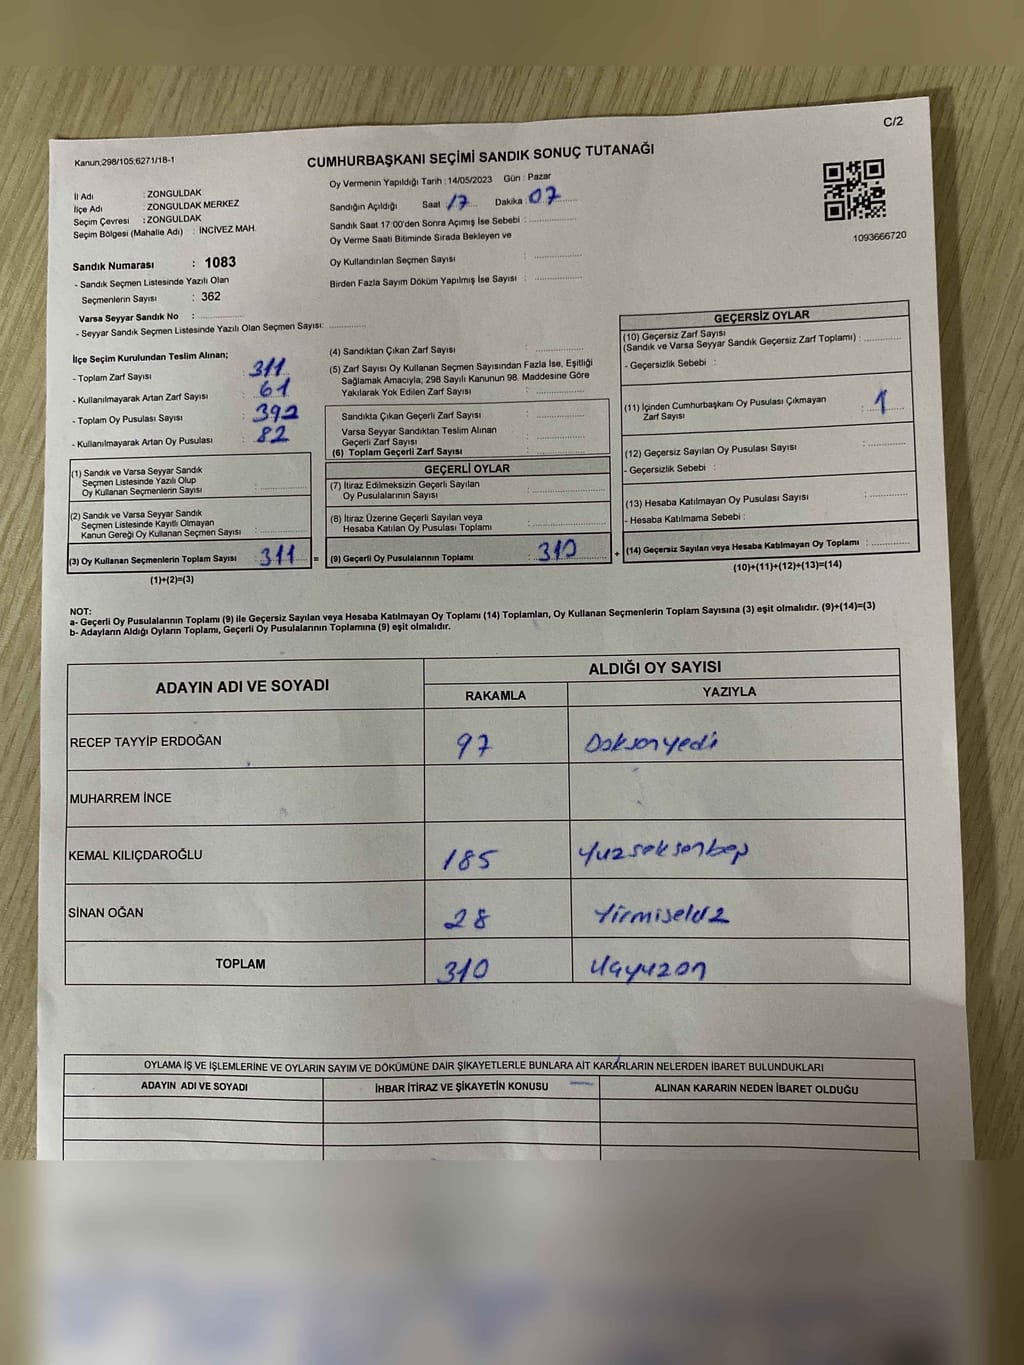 C/2
Kanun,298/105,6271/18-1
CUMHURBAŞKANI SEÇİMİ SANDIK SONUÇ TUTANAĞI
İl Adı : ZONGULDAK
İlçe Adı : ZONGULDAK MERKEZ
Seçim Çevresi : ZONGULDAK
Seçim Bölgesi (Mahalle Adı) : İNCİVEZ MAH.
Oy Vermenin Yapıldığı Tarih : 14/05/2023 Gün : Pazar
Sandığın Açıldığı Saat 17 Dakika 07
Sandık Saat 17:00'den Sonra Açımış İse Sebebi :
Oy Verme Saati Bitiminde Sırada Bekleyen ve
Oy Kullandırılan Seçmen Sayısı :
Birden Fazla Sayım Döküm Yapılmış İse Sayısı :
1093666720
Sandık Numarası : 1083
- Sandık Seçmen Listesinde Yazılı Olan
Seçmenlerin Sayısı : 362
Varsa Seyyar Sandık No :
- Seyyar Sandık Seçmen Listesinde Yazılı Olan Seçmen Sayısı:
İlçe Seçim Kurulundan Teslim Alınan;
- Toplam Zarf Sayısı : 311
- Kullanılmayarak Artan Zarf Sayısı : 61
- Toplam Oy Pusulası Sayısı : 392
- Kullanılmayarak Artan Oy Pusulası : 82
(1) Sandık ve Varsa Seyyar Sandık
Seçmen Listesinde Yazılı Olup
Oy Kullanan Seçmenlerin Sayısı :
(2) Sandık ve Varsa Seyyar Sandık
Seçmen Listesinde Kayıtlı Olmayan
Kanun Gereği Oy Kullanan Seçmen Sayısı :
(3) Oy Kullanan Seçmenlerin Toplam Sayısı : 311 =
(1)+(2)=(3)
(4) Sandıktan Çıkan Zarf Sayısı :
(5) Zarf Sayısı Oy Kullanan Seçmen Sayısından Fazla İse, Eşitliği
Sağlamak Amacıyla, 298 Sayılı Kanunun 98. Maddesine Göre
Yakılarak Yok Edilen Zarf Sayısı :
Sandıkta Çıkan Geçerli Zarf Sayısı :
Varsa Seyyar Sandıktan Teslim Alınan
Geçerli Zarf Sayısı :
(6) Toplam Geçerli Zarf Sayısı :
GEÇERLİ OYLAR
(7) İtiraz Edilmeksizin Geçerli Sayılan
Oy Pusulalarının Sayısı :
(8) İtiraz Üzerine Geçerli Sayılan veya
Hesaba Katılan Oy Pusulası Toplamı :
(9) Geçerli Oy Pusulalarının Toplamı : 310 +
GEÇERSİZ OYLAR
(10) Geçersiz Zarf Sayısı
(Sandık ve Varsa Seyyar Sandık Geçersiz Zarf Toplamı) :
- Geçersizlik Sebebi :
(11) İçinden Cumhurbaşkanı Oy Pusulası Çıkmayan
Zarf Sayısı : 1
(12) Geçersiz Sayılan Oy Pusulası Sayısı :
- Geçersizlik Sebebi :
(13) Hesaba Katılmayan Oy Pusulası Sayısı :
- Hesaba Katılmama Sebebi :
(14) Geçersiz Sayılan veya Hesaba Katılmayan Oy Toplamı :
(10)+(11)+(12)+(13)=(14)
NOT:
a- Geçerli Oy Pusulalarının Toplamı (9) ile Geçersiz Sayılan veya Hesaba Katılmayan Oy Toplamı (14) Toplamları, Oy Kullanan Seçmenlerin Toplam Sayısına (3) eşit olmalıdır. (9)+(14)=(3)
b- Adayların Aldığı Oyların Toplamı, Geçerli Oy Pusulalarının Toplamına (9) eşit olmalıdır.
ADAYIN ADI VE SOYADI
ALDIĞI OY SAYISI
RAKAMLA YAZIYLA
RECEP TAYYİP ERDOĞAN 97 Doksanyedi
MUHARREM İNCE
KEMAL KILIÇDAROĞLU 185 Yuzseksenbeş
SİNAN OĞAN 28 Yirmisekiz
TOPLAM 310 Uçyuzon
OYLAMA İŞ VE İŞLEMLERİNE VE OYLARIN SAYIM VE DÖKÜMÜNE DAİR ŞİKAYETLERLE BUNLARA AİT KARARLARIN NELERDEN İBARET BULUNDUKLARI
ADAYIN ADI VE SOYADI İHBAR İTİRAZ VE ŞİKAYETİN KONUSU ALINAN KARARIN NEDEN İBARET OLDUĞU